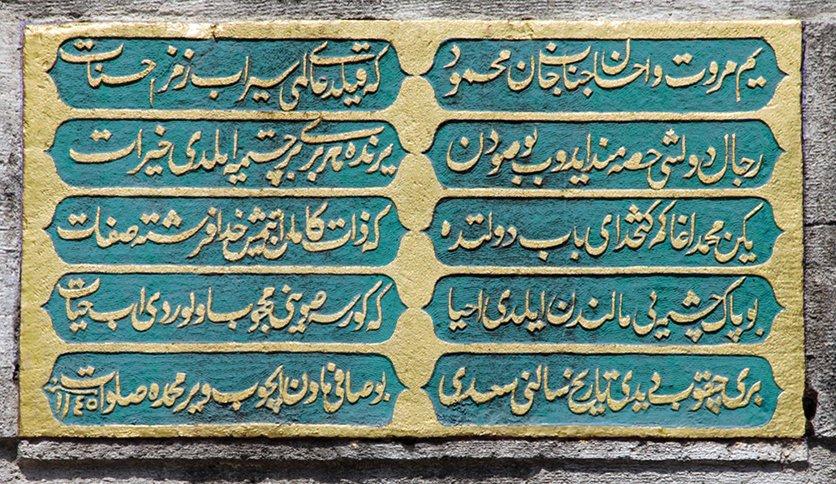 یم مروت واحسان جناب خان محمود
که قیلدی عالمی سیراب زمزم حسنات
رجال دولتنی حصه مند ایدوب بو صودن
یرنده هر بری بر چشمه ایلدی خیرات
یکن محمد اغا کم کتخدای باب دولتده
که ذات کاملن ایتمش خدا فرشته صفات
بو پاک چشمه یی مالندن ایلدی احیا
که کورسه صوینی محجوب اولوردی اب حیات
بری چقوب دیدی تاریخ سالنی سعدی
بو صافی مادن ایچوب ویر محمده صلوات سنه ١١٤٥